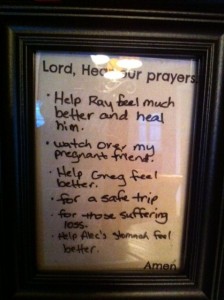 Lord, Hear our prayers
• Help Ray feel much
better and heal
him.
• watch over my
pregnant friend.
• Help Greg feel
better.
• for a safe trip
• for those suffering
loss.
• Help Alec's stomach feel
better.
Amen